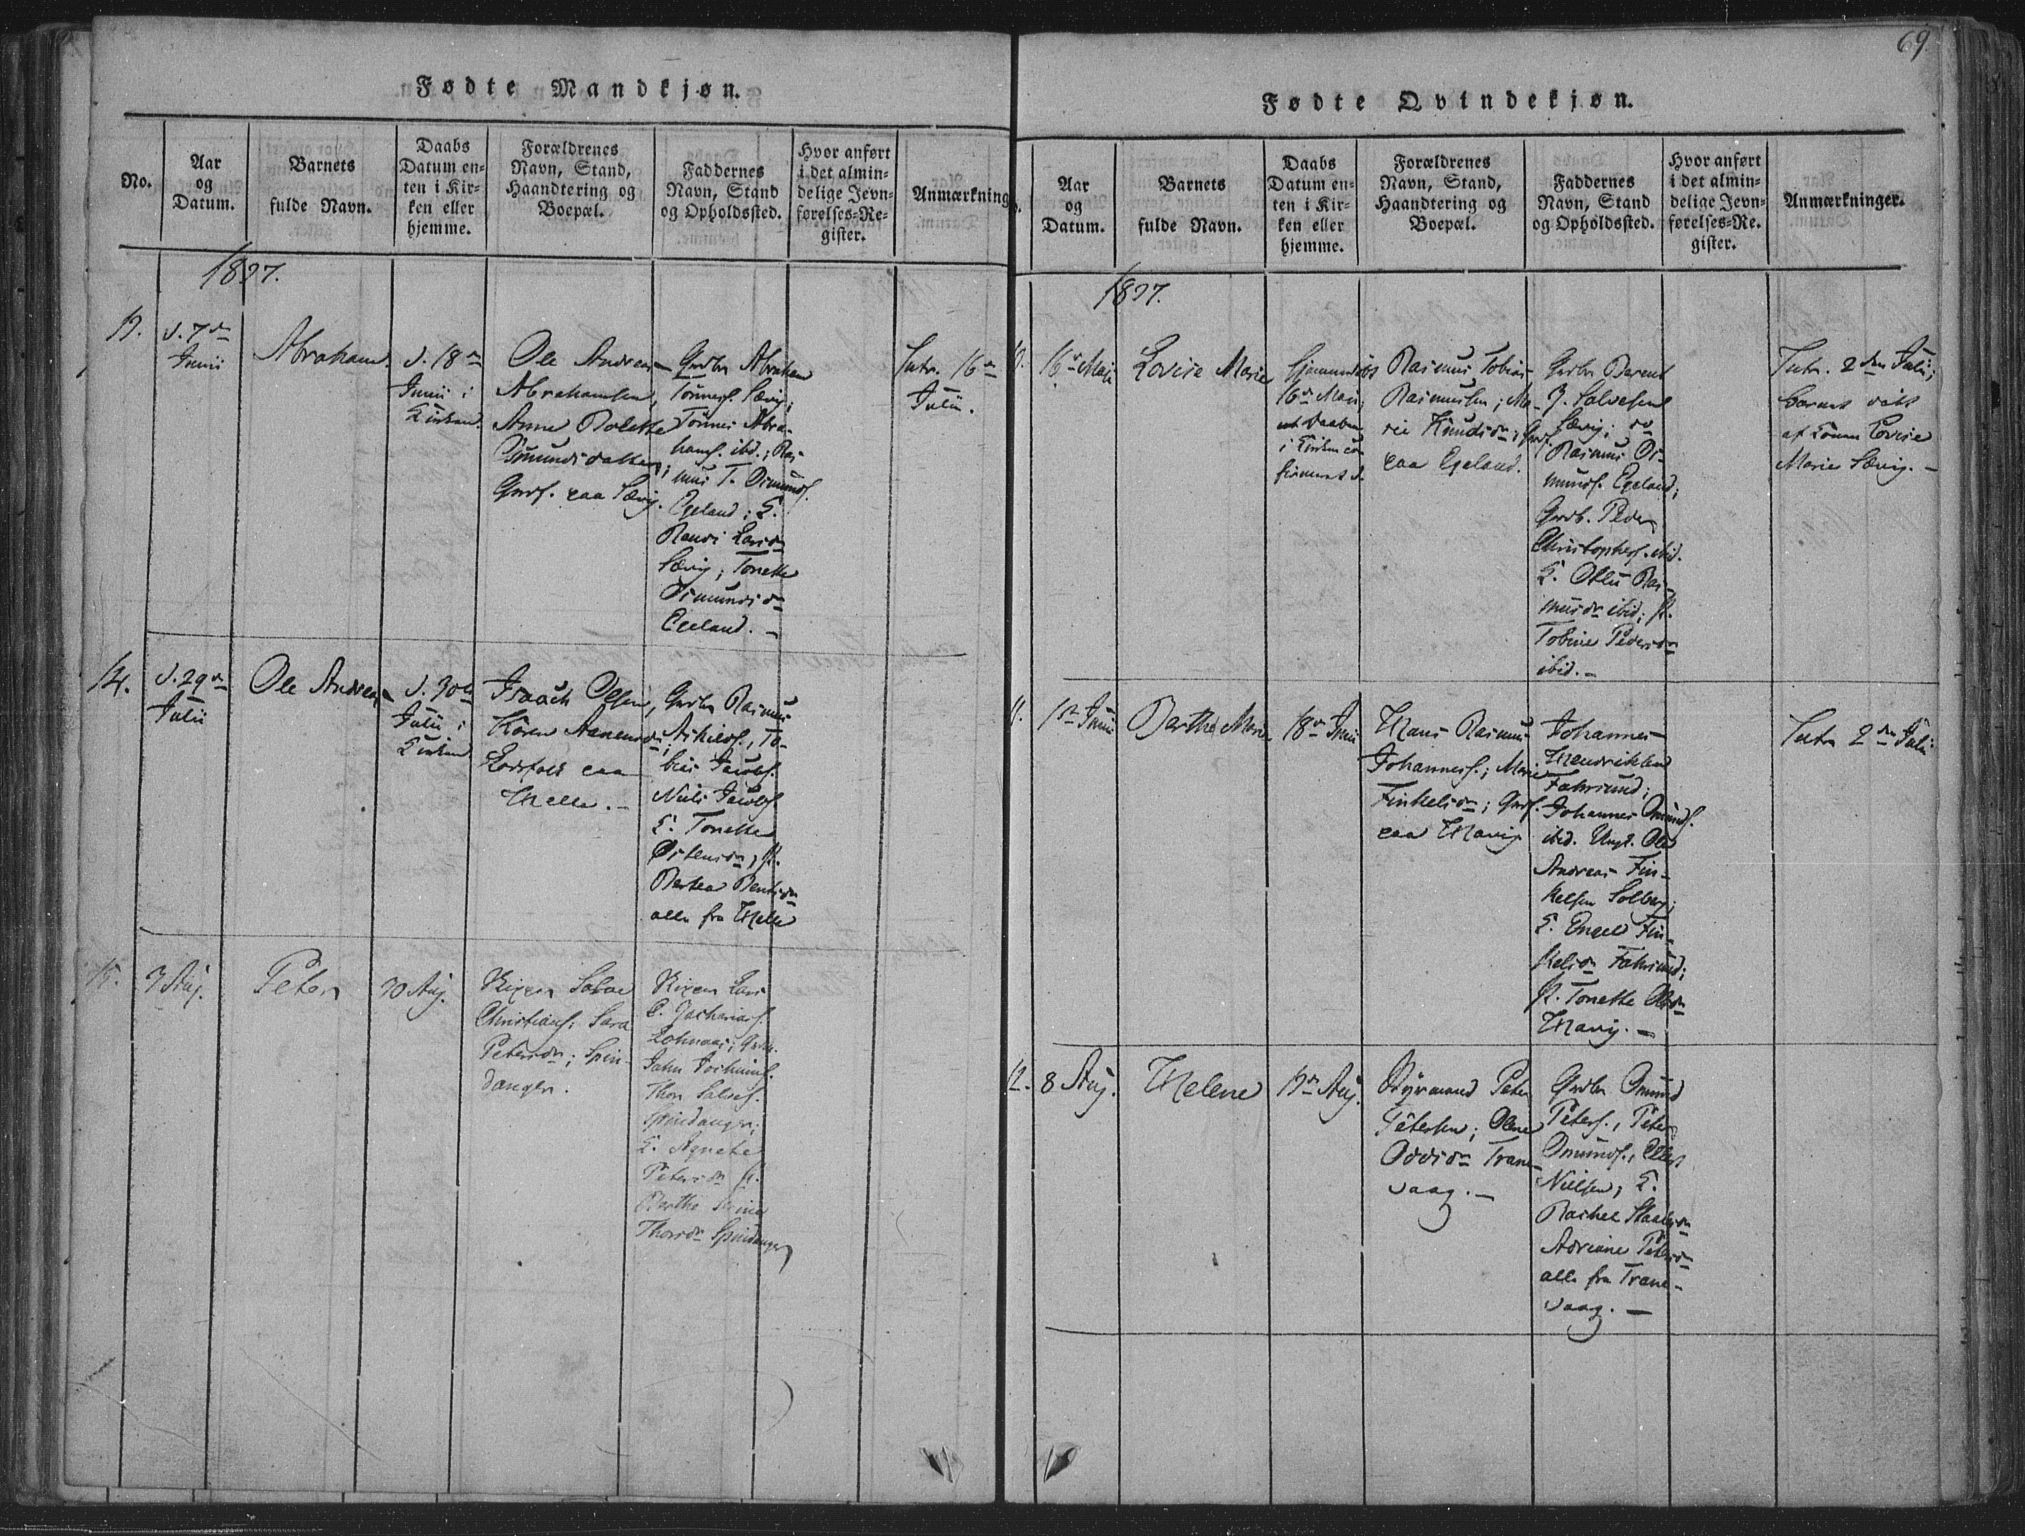 69
Fødte Mandkjøn.
No.
Aar
og
Datum.
Barnets
fulde Navn.
Daabs
Datum en-
ten i Kir-
ken eller
hjemme.
Forældrenes
Navn, Stand,
Haandtering og
Boepæl.
Faddernes
Navn, Stand
og Opholdssted.
Hvor anført
i det almin-
delige Jevn-
førelses-Re-
gister.
Anmærkning
1837.
13.
d. 7de
Junii
Abraham.
d. 18de
Junii i
Kirken.
Ole Andreas
Abrahamsen,
Anne Bolette
Osmundsdatter,
Grdf. paa Sævig.
Grdbr Abraham
Tønnes. Sævig;
Tønnes Abra-
hams. ibd.; Ras-
mus T. Osmunds.
Egeland; K.
Randi Larsdr
Sævig; Tonette
Osmundsdr
Egeland. —
Intr. 16de
Julii.
14.
d. 29de
Julii
Ole Andreas
d. 30te
Julii i
Kirken
Isaach Olsen,
Karen Aanensdr;
Lodsfolk paa
Helle. —
Grdbr Rasmus
Askilds., To-
bias Jacobs.
Niels Jacobs.
K. Tonette
Østensdr, P.
Berthe Bentsdr
alle fra Helle
15.
3 Aug.
Peter
30 Aug.
Christians; Sara
Petersdr; Spin-
danger.
Lars
E. Zachariass.
Jahn Jochums.
Thor Salves.
Spindanger;
K. Agnete
Petersdr P.
Berthe
Thorsdr Spindanger
Fødte Qvindekjøn.
Aar
og
Datum.
Barnets
fulde Navn.
Daabs
Datum en-
ten i Kir-
ken eller
hjemme.
Forældrenes
Navn, Stand,
Haandtering og
Boepæl.
Faddernes
Navn, Stand
og Opholdssted.
Hvor anført
i det almin-
delige Jevn-
førelses-Re-
gister.
Anmærkninger.
1837.
16de Maji
Lovise Marie
Hjemmedøbt
16de Maii;
Daaben
i Kirken con-
firmeret d.
Rasmus Tobias
Rasmussen; Ma-
rie Knudsdr; Grdf.
paa Egeland.
Grdbr Berent
J. Salvesen
Sævig; do
Rasmus Os-
munds. Egeland;
Grdb. Peder
Christophers. ibid.
K. Ras-
musdr ibid; P.
Tobine Pedersdr
ibid. —
Intr. 2den Julii;
barnet
af Konen Lovise
Marie Sævig. —
11.
Junii
Berthe Marie
18de Junii
Hans Rasmus
Johanness.; Marie
Finkelsdr; Grdf.
paa Havig
Johannes
Hendriksen
Fahrsund;
Johannes Omunds.
ibd. Ungk. Ole
Andreas Fin-
kelsen Solberg;
K. Engel Fin-
kelsdr Fahrsund;
P. Tonette Olsdr
Havig. —
Intr 2den Julii
12.
8 Aug.
Helene
13de Aug.
Styrmand Peter
Petersen; Olene
Oddsdr Trane-
vaag. —
Grdbr Omund
Peters., Peter
Omunds.,
Nielsen; K.
Rachel
Adriane Petersdr
alle fra Trane-
vaag. —